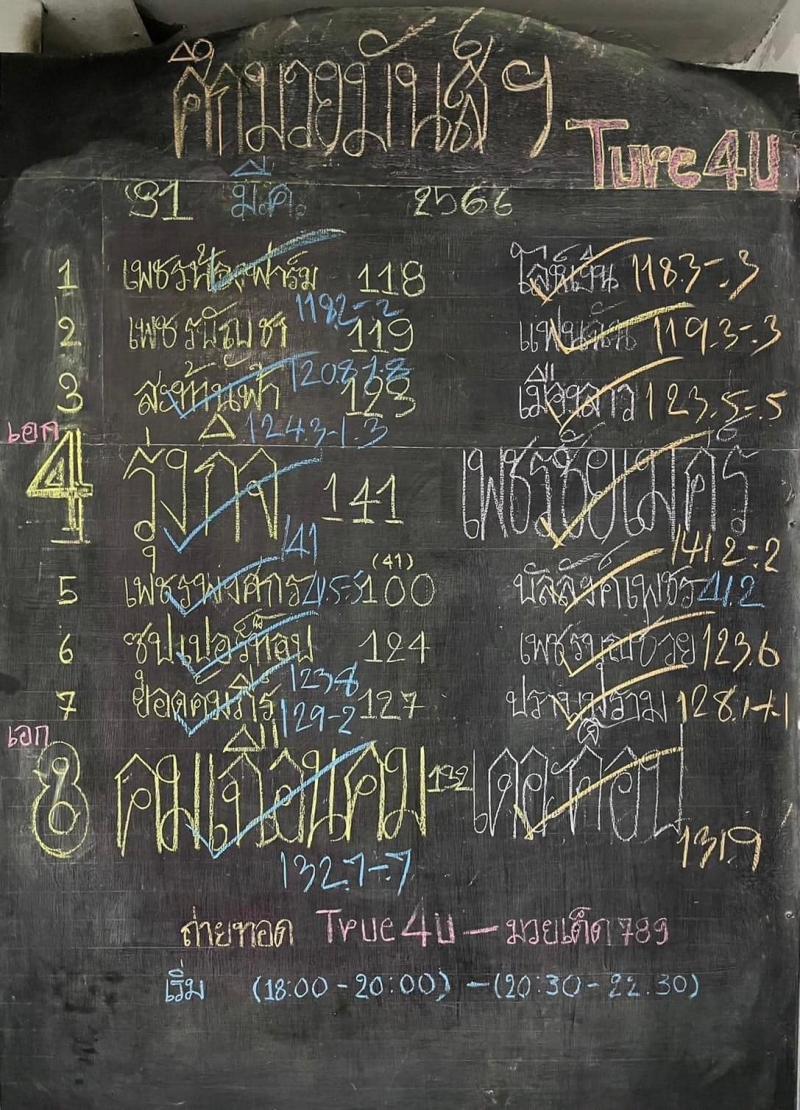 ศึกมวยมันส์ๆ
Ture4U
31 มี.ค. 2566
1 เพชรน้องฟาร์ม 118 118.3-.3
1182-.2
2 เพชรบัญชา 119 แฟนฉัน 119.3-.3
120.8-1.8
3 สะท้านฟ้า 123 เมืองลาว 123.5-.5
124.3-1.3
เอก
4 รุ่งกิจ 141 เพชรชัยเมศร์
141 141.2-.2
(41)
5 เพชรพงศกร 41.5-.5 100 บัลลังค์เพชร 41.2
6 ซุปเปอร์ท็อป 124 เพชรบุญช่วย 123.6
123.8
7 ยอดคมภีร์ 129-2 127 ปราบปราม 128.1-1.1
เอก
8 คมเถื่อนคม 132 เดอะค็อป
132.7-.7 131.9
ถ่ายทอด True4U - มวยเด็ด789
เริ่ม (18:00 - 20:00) - (20:30 - 22.30)